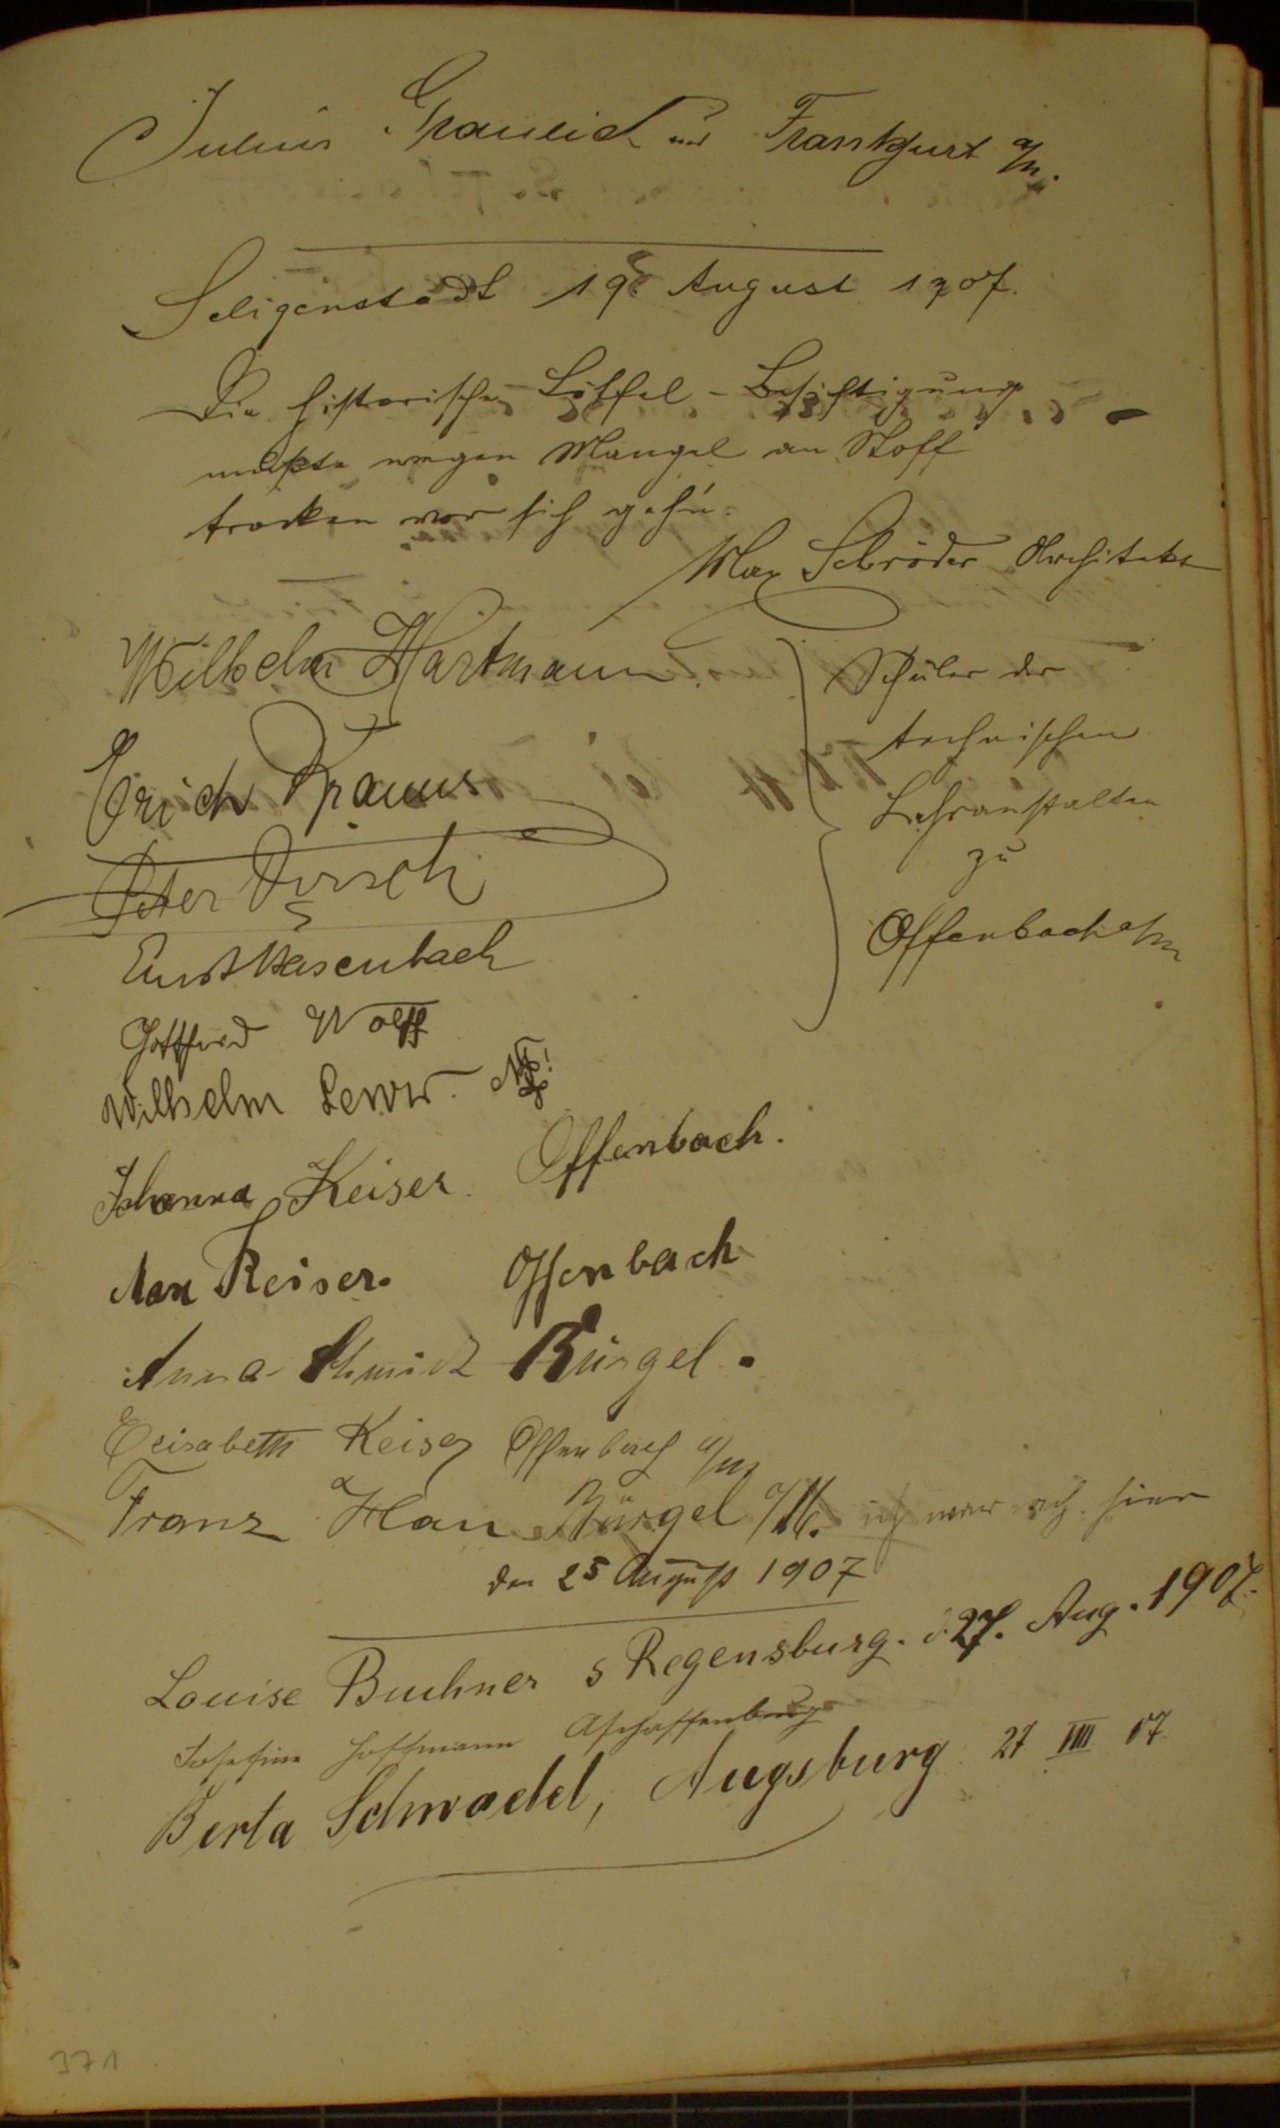 Julius Graulich aus Frankfurt a/M.
Seligenstadt 19. August 1907.
Die historische Löffel-Besichtigung
mußte wegen Mangel an Stoff
trocken vor sich geh'n.
Max Schröder Architekt
Wilhelm Hartmann.
Erich Kraus
Peter
Ernst Hasenbach
Gottfried Wolff
Wilhelm
Schüler der
technischen
Lehranstalten
zu
Offenbach a/m
Johanna Keiser. Offenbach.
Max Keiser. Offenbach
Anna Schmidt Bürgel.
Elisabeth Keiser Offenbach a/m
Franz Hau Bürgel a/M. ich war auch hier
den 25 August 1907
Louise Buchner Regensburg. d. 27. Aug. 1907.
Josefine Hoffmann Aschaffenburg
Berta Schwaebel, Augsburg 27 VIII 07
371